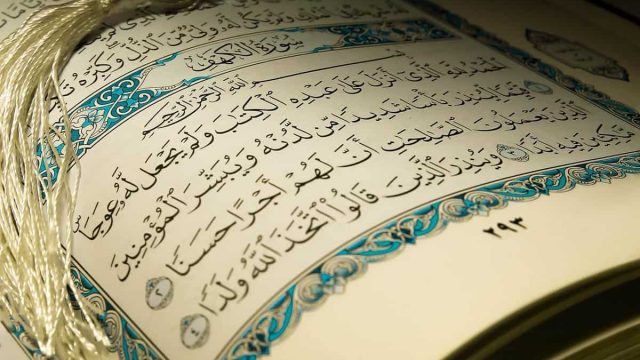 وَلِيٌّ مِّنَ ٱلذُّلِّ وَكَبِّرْهُ
سُورَةُ الْكَهْفِ
بِسْمِ ٱللَّهِ ٱلرَّحْمَٰنِ ٱلرَّحِيمِ
ٱلْحَمْدُ لِلَّهِ ٱلَّذِىٓ أَنزَلَ عَلَىٰ عَبْدِهِ ٱلْكِتَٰبَ وَلَمْ يَجْعَل لَّهُۥ عِوَجَاۜ
قَيِّمًا لِّيُنذِرَ بَأْسًا شَدِيدًا مِّن لَّدُنْهُ وَيُبَشِّرَ ٱلْمُؤْمِنِينَ
ٱلَّذِينَ يَعْمَلُونَ ٱلصَّٰلِحَٰتِ أَنَّ لَهُمْ أَجْرًا حَسَنًا ٢
مَّٰكِثِينَ فِيهِ أَبَدًا ٣ وَيُنذِرَ ٱلَّذِينَ قَالُوا۟ ٱتَّخَذَ ٱللَّهُ وَلَدًا ٤
٢٩٣